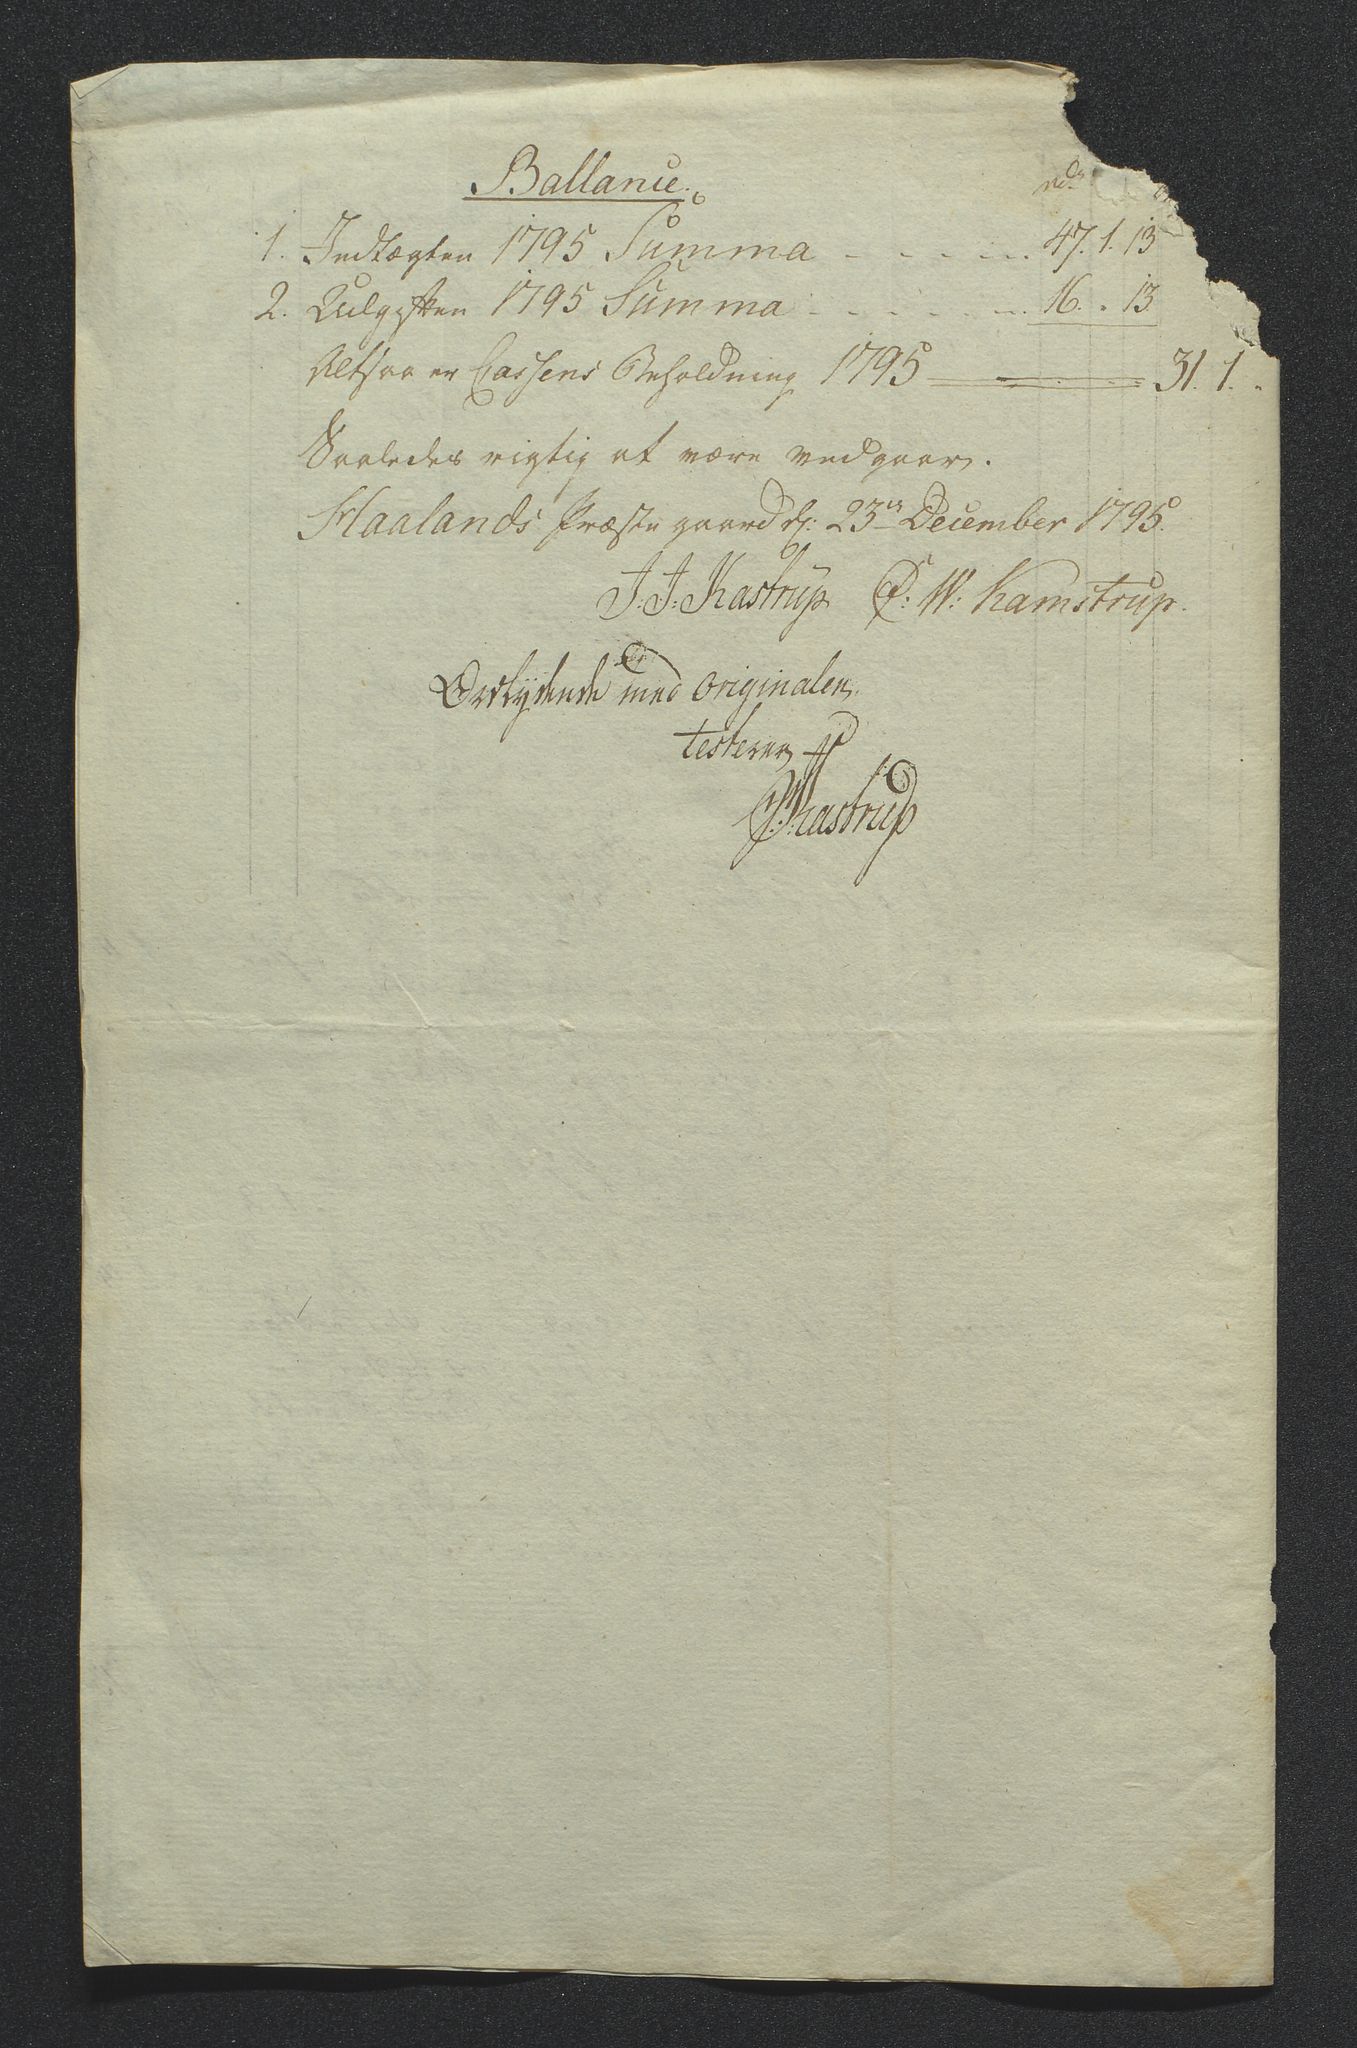 Ballance.
rd
1. Indtægten 1795 Summa - - - - - 47. 1. 13
2. Udgiften 1795 Summa - - - - - - 16. " 13
Altsaa er Cassens Beholdning 1795 = 31. 1. "
Saaledes rigtig at være vedgaar.
Haalands Præstegaard d: 23de December 1795.
J. J. Kastrup C: W: Kamstrup.
Ordlydende med originalen
testerer
J. J. Kastrup